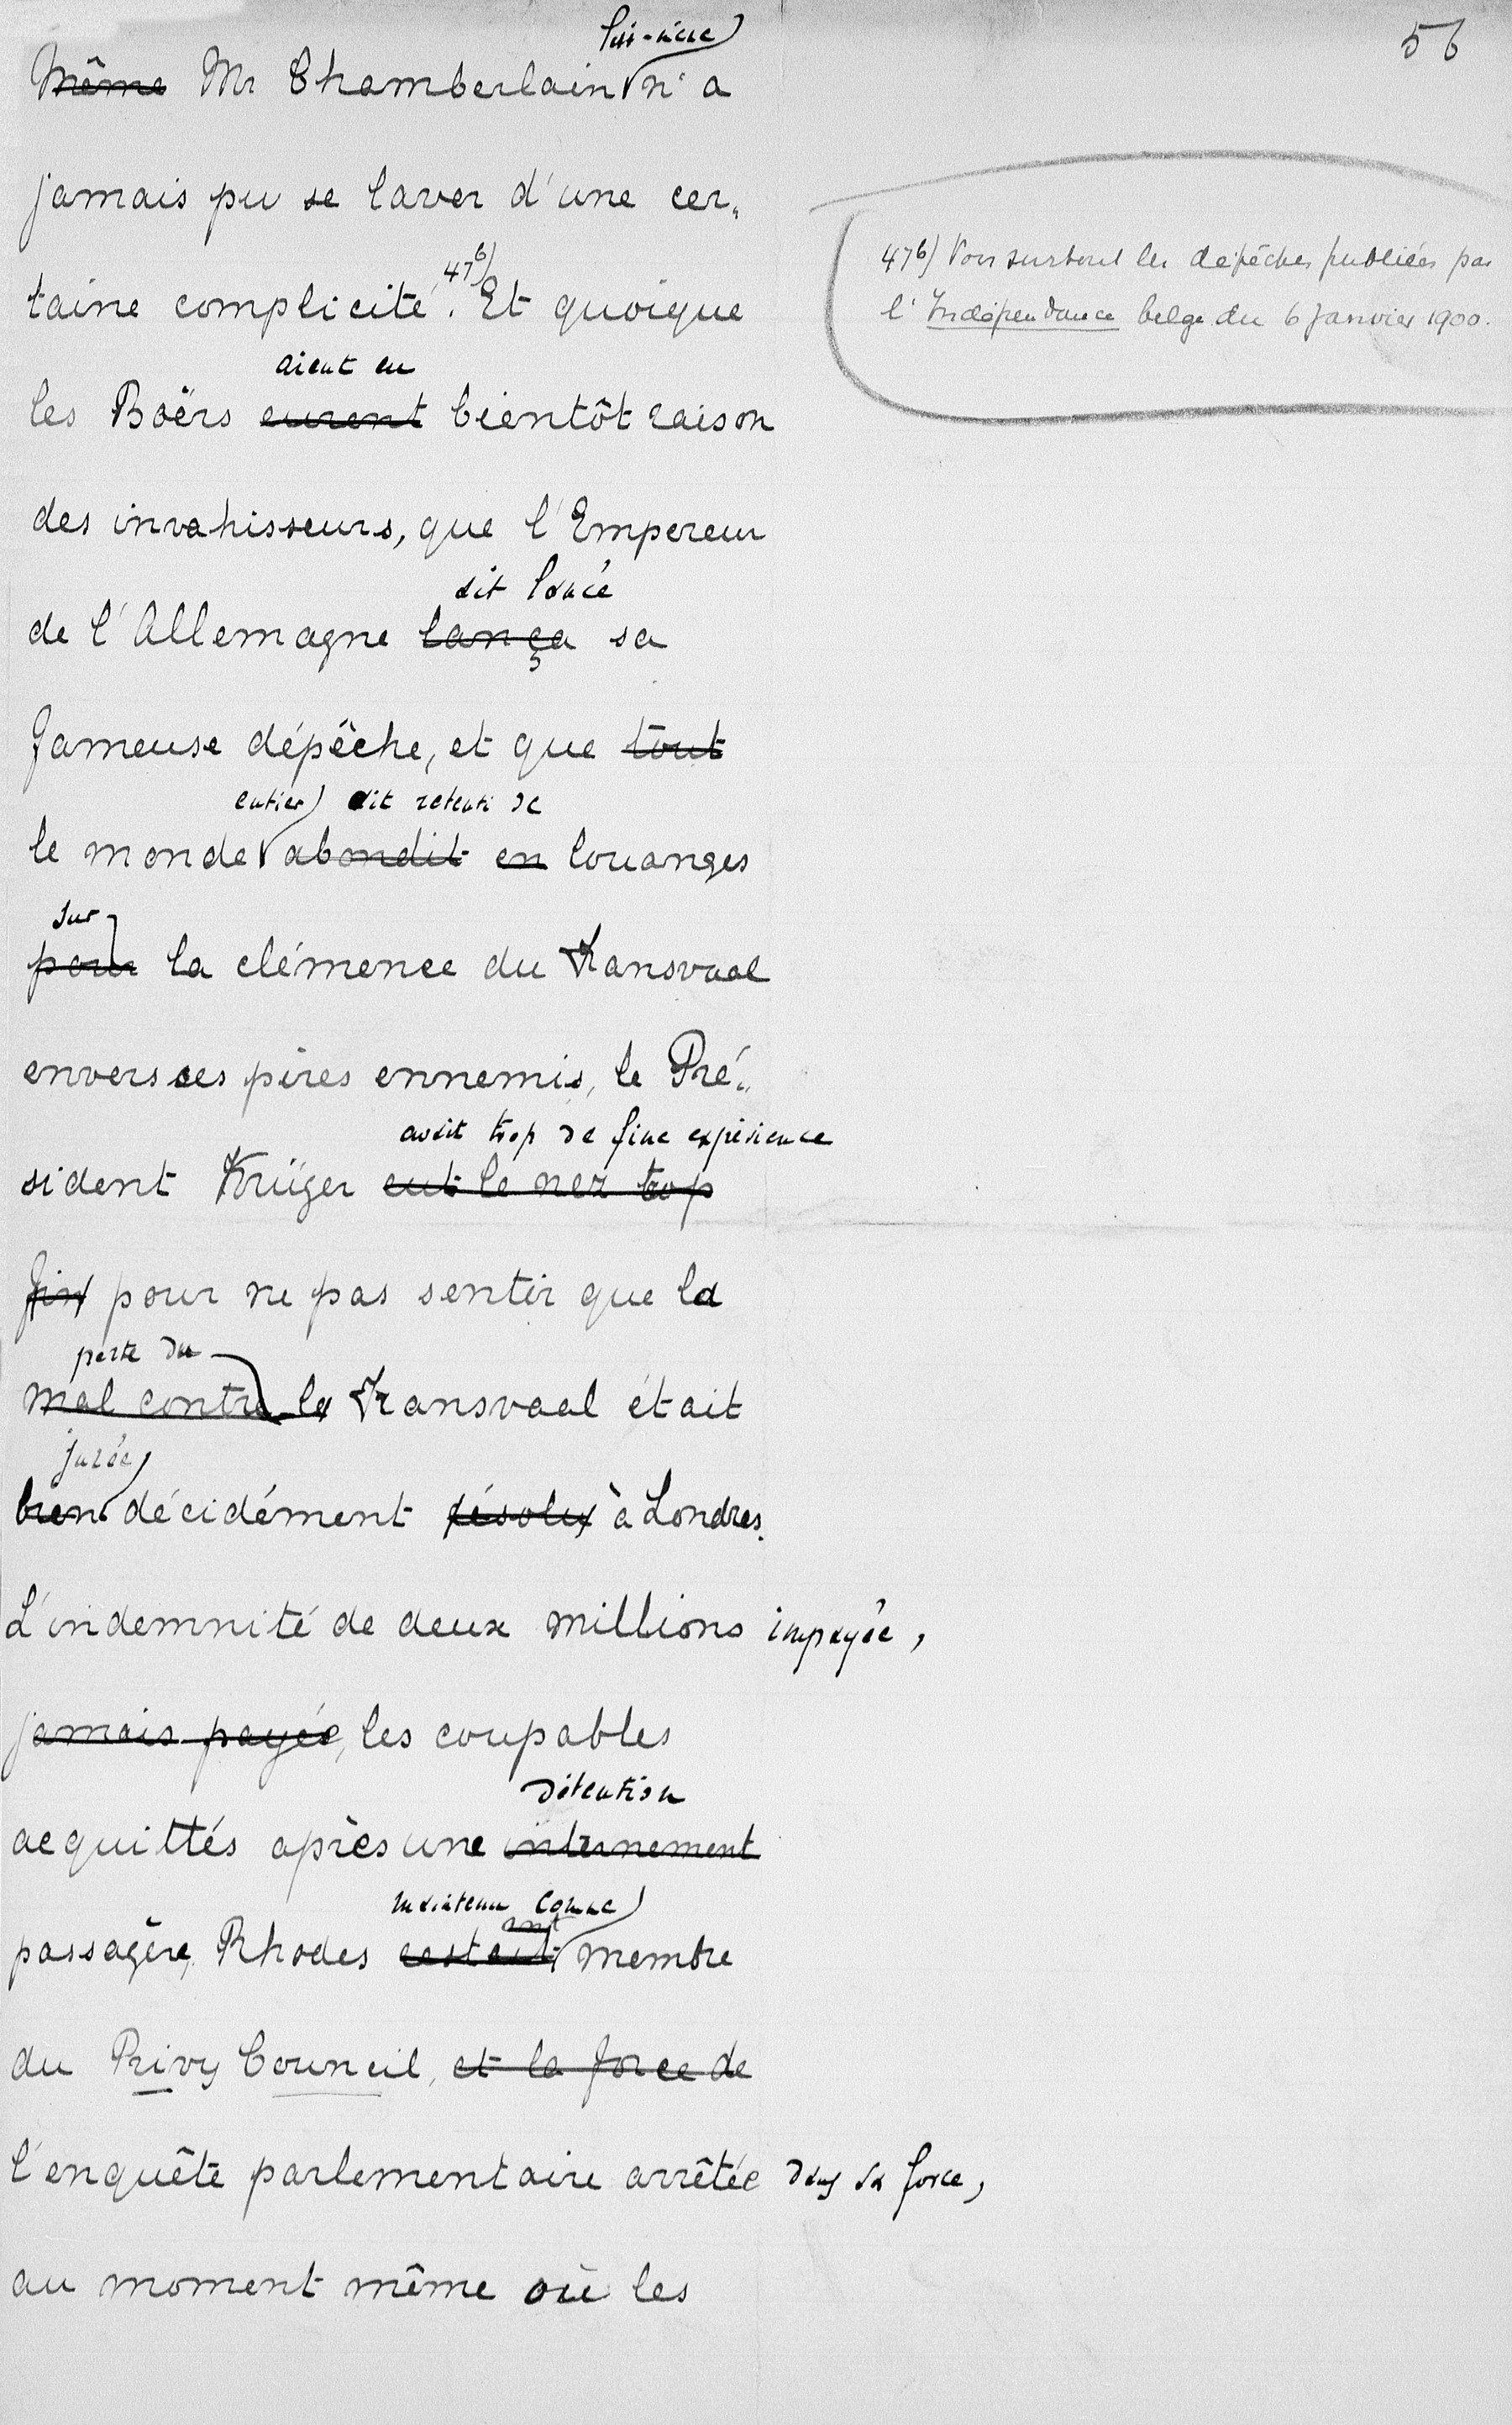 56
lui-même
Même Mr Chamberlain n'a
jamais pu se laver d'une cer„
47⁶)
taine complicité. Et quoique
aient eu
les Boërs eurent bientôt raison
des invahisseurs, que l'Empereur
ait lancé
de l'Allemagne lança sa
fameuse dépêche, et que tout
entier ait retenti de
le monde abondit en louanges
sur
pour la clémence du Transvaal
envers ses pires ennemis, le Pré„
avait trop de fine expérience
sident Krüger eut le nez trop
fin pour ne pas sentir que la
perte du
mal contre le Transvaal était
jurée
bien décidément résolu à Londres.
L'indemnité de deux millions impayée,
jamais payée, les coupables
détention
acquittés après une internement
maintenu comme
passagère, Rhodes membre
du Privy Council, et la force de
l'enquête parlementaire arrêtée dans sa force,
au moment même où les
47⁶) Voir surtout les dépêches publiées par
l'Indépendance belge du 6 Janvier 1900.